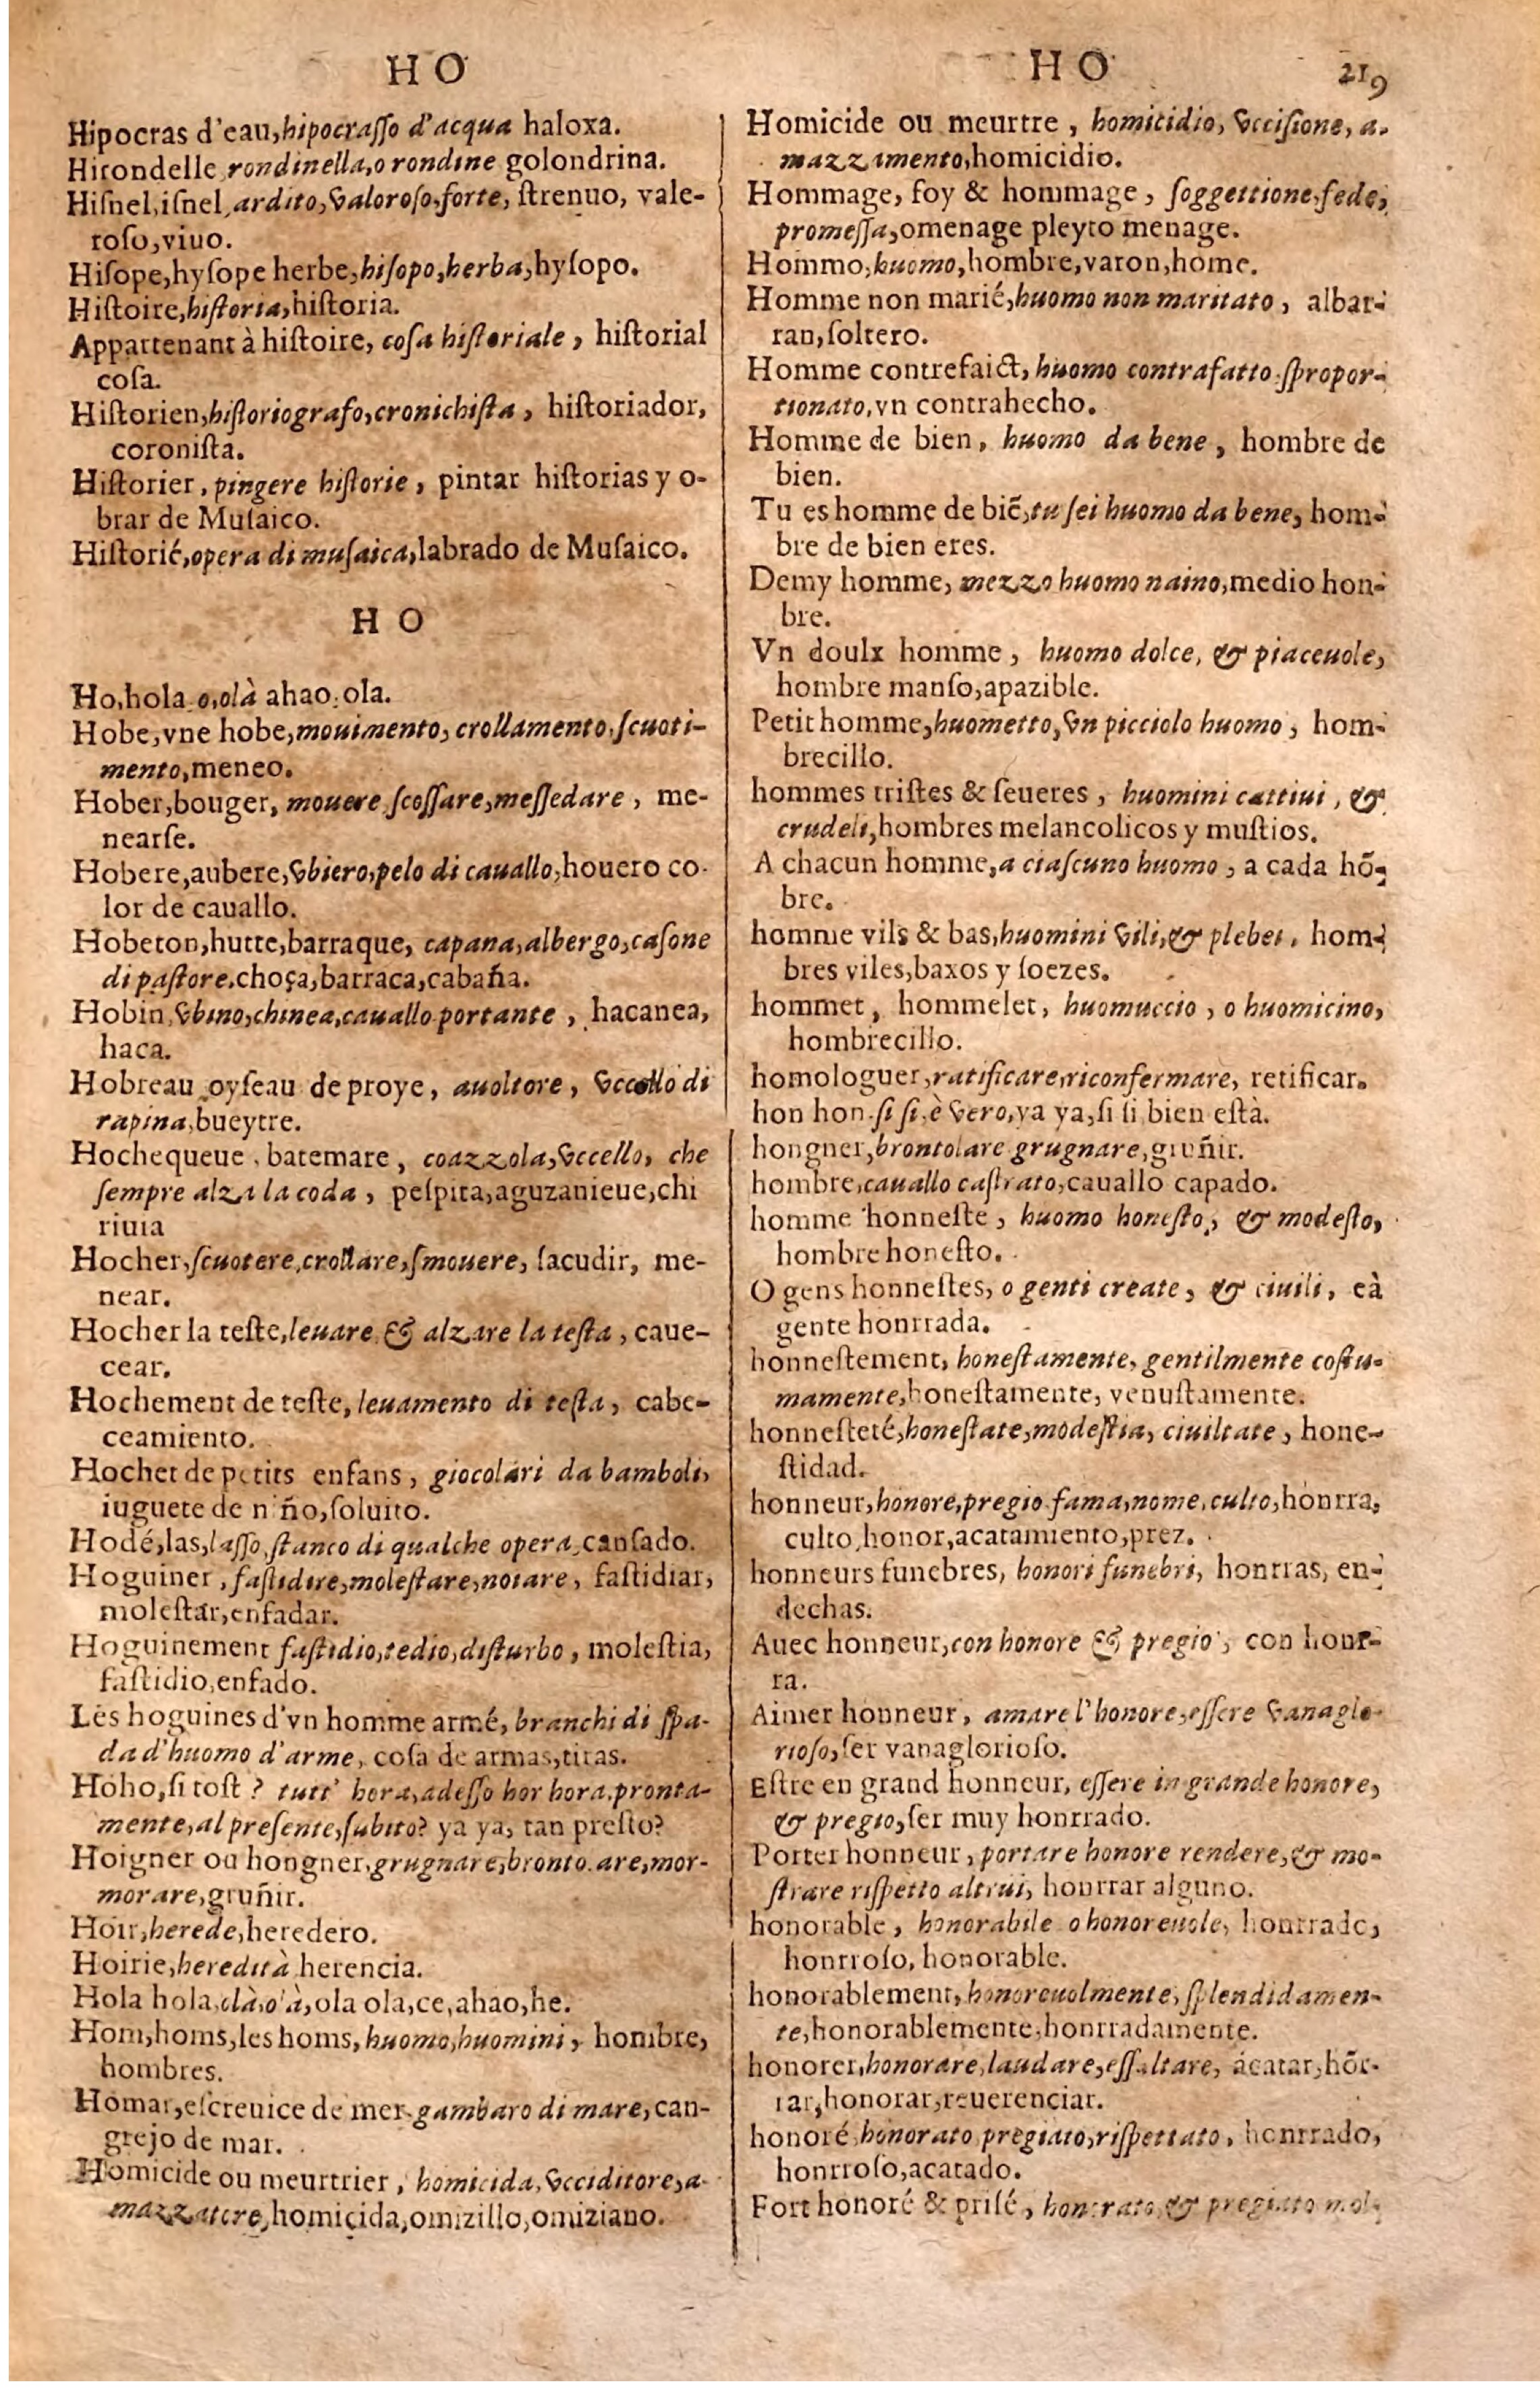 HO
Hipocras d'eau,hipocrasſo d'acqua haloxa.
Hirondelle rondinella,o rondine golondrina.
Hiſnel,iſnel,ardito,valoroſo,forte, ſtrenuo, vale-
roſo,viuo.
Hiſope,hyſope herbe,hiſopo,herba,hyſopo.
Hiſtoire,hiſtoria,hiſtoria.
Appartenant à hiſtoire, coſa hiſtoriale, hiſtorial
coſa.
Hiſtorien,hiſtoriografo,cronichiſta, hiſtoriador,
coroniſta.
Hiſtorier, pingere hiſtorie, pintar hiſtorias y o-
brar de Muſaico.
Hiſtorié,opera di muſaica,labrado de Muſaico.
HO
Ho,hola o,olà ahao,ola.
Hobe,vne hobe,mouimento, crollamento,ſcuoti-
mento,meneo.
Hober,bouger, mouere ſcoſſare,meſſedare, me-
nearſe.
Hobere,aubere,vbiero,pelo di cauallo,houero co-
lor de cauallo.
Hobeton,hutte,barraque, capana,albergo,caſone
di paſtore.choça,barraca,cabaña.
Hobin,vbino,chinea,cauallo portante, hacanea,
haca.
Hobreau oyſeau de proye, auoltore, vccello di
rapina,bueytre.
Hochequeue, batemare, coazzola,vccello, che
ſempre alza la coda, peſpita,aguzanieue,chi
riuia
Hocher,ſcuotere,crollare,ſmouere, ſacudir, me-
near.
Hocher la teſte,leuare & alzare la teſta, caue-
cear.
Hochement de teſte, leuamento di teſta, cabe-
ceamiento.
Hochet de petits enfans, giocolari da bamboli,
iuguete de niño,ſoluito.
Hodé,las,laſſo,ſtanco di qualche opera,canſado.
Hoguiner, faſtidire,moleſtare,noiare, faſtidiar,
moleſtar,enfadar.
Hoguinement faſtidio,tedio,diſturbo, moleſtia,
faſtidio,enfado.
Les hoguines d'vn homme armé, branchi di ſpa-
da d'huomo d'arme, coſa de armas,tiras.
Hoho,ſi toſt? tutt' hora,adeſſo hor hora,pronta-
mente,al preſente,ſubito? ya ya, tan preſto?
Hoigner ou hongner,grugnare,bronto.are,mor-
morare,gruñir.
Hoir,herede,heredero.
Hoirie,heredità herencia.
Hola hola,olà,olà,ola ola,ce,ahao,he.
Hom,homs,les homs,huomo,huomini, hombre,
hombres.
Homar,eſcreuice de mer gambaro di mare,can-
grejo de mar.
Homicide ou meurtrier, homicida,vcciditore,a-
mazzatore,homicida,omizillo,omiziano.
HO 219
Homicide ou meurtre, homicidio, vcciſione, a-
mazzamento,homicidio.
Hommage, foy & hommage, ſoggettione,fede,
promeſſa,omenage pleyto menage.
Hommo,huomo,hombre,varon,home.
Homme non marié,huomo non maritato, albar-
ran,ſoltero.
Homme contrefaict, huomo contrafatto ſpropor-
tionato,vn contrahecho.
Homme de bien, huomo da bene, hombre de
bien.
Tu es homme de biẽ,tu ſei huomo da bene, hom-
bre de bien eres.
Demy homme, mezzo huomo naino,medio hon-
bre.
Vn doulx homme, huomo dolce, & piaceuole,
hombre manſo,apazible.
Petit homme,huometto,vn picciolo huomo, hom-
brecillo.
hommes triſtes & ſeueres, huomini cattiui, &
crudeli,hombres melancolicos y muſtios.
A chacun homme,a ciaſcuno huomo, a cada hõ-
bre.
homme vils & bas,huomini vili,& plebei, hom-
bres viles,baxos y ſoezes.
hommet, hommelet, huomuccio, o huomicino,
hombrecillo.
homologuer,ratificare,riconfermare, retificar.
hon hon ſi ſi,è vero,ya ya,ſi ſi bien eſtà.
hongner,brontolare grugnare,gruñir.
hombre,cauallo caſtrato,cauallo capado.
homme honneſte, huomo honeſto, & modeſto,
hombre honeſto.
O gens honneſtes, o genti create, & ciuili, eà
gente honrrada.
honneſtement, honeſtamente, gentilmente coſtu-
mamente,honeſtamente, venuſtamente.
honneſteté,honeſtate,modeſtia, ciuiltate, hone-
ſtidad.
honneur,honore,pregio fama,nome,culto,honrra,
culto,honor,acatamiento,prez.
honneurs funebres, honori funebri, honrras, en-
dechas.
Auec honneur,con honore & pregio, con honr-
ra.
Aimer honneur, amare l'honore,eſſere vanaglo-
rioſo,ſer vanaglorioſo.
Eſtre en grand honneur, eſſere in grande honore,
& pregio,ſer muy honrrado.
Porter honneur, portare honore rendere,& mo-
ſtrare riſpetto altrui, honrrar alguno.
honorable, honorabile o honoreuole, honrrade,
honrroſo, honorable.
honorablement,honoreuolmente,ſplendidamen-
te,honorablemente,honrradamente.
honorer,honorare,laudare,eſſaltare, acatar,hõr-
rar,honorar,reuerenciar.
honoré,honorato pregiato,riſpettato, honrrado,
honrroſo,acatado.
Fort honoré & priſé, honorato & pregiato mol-